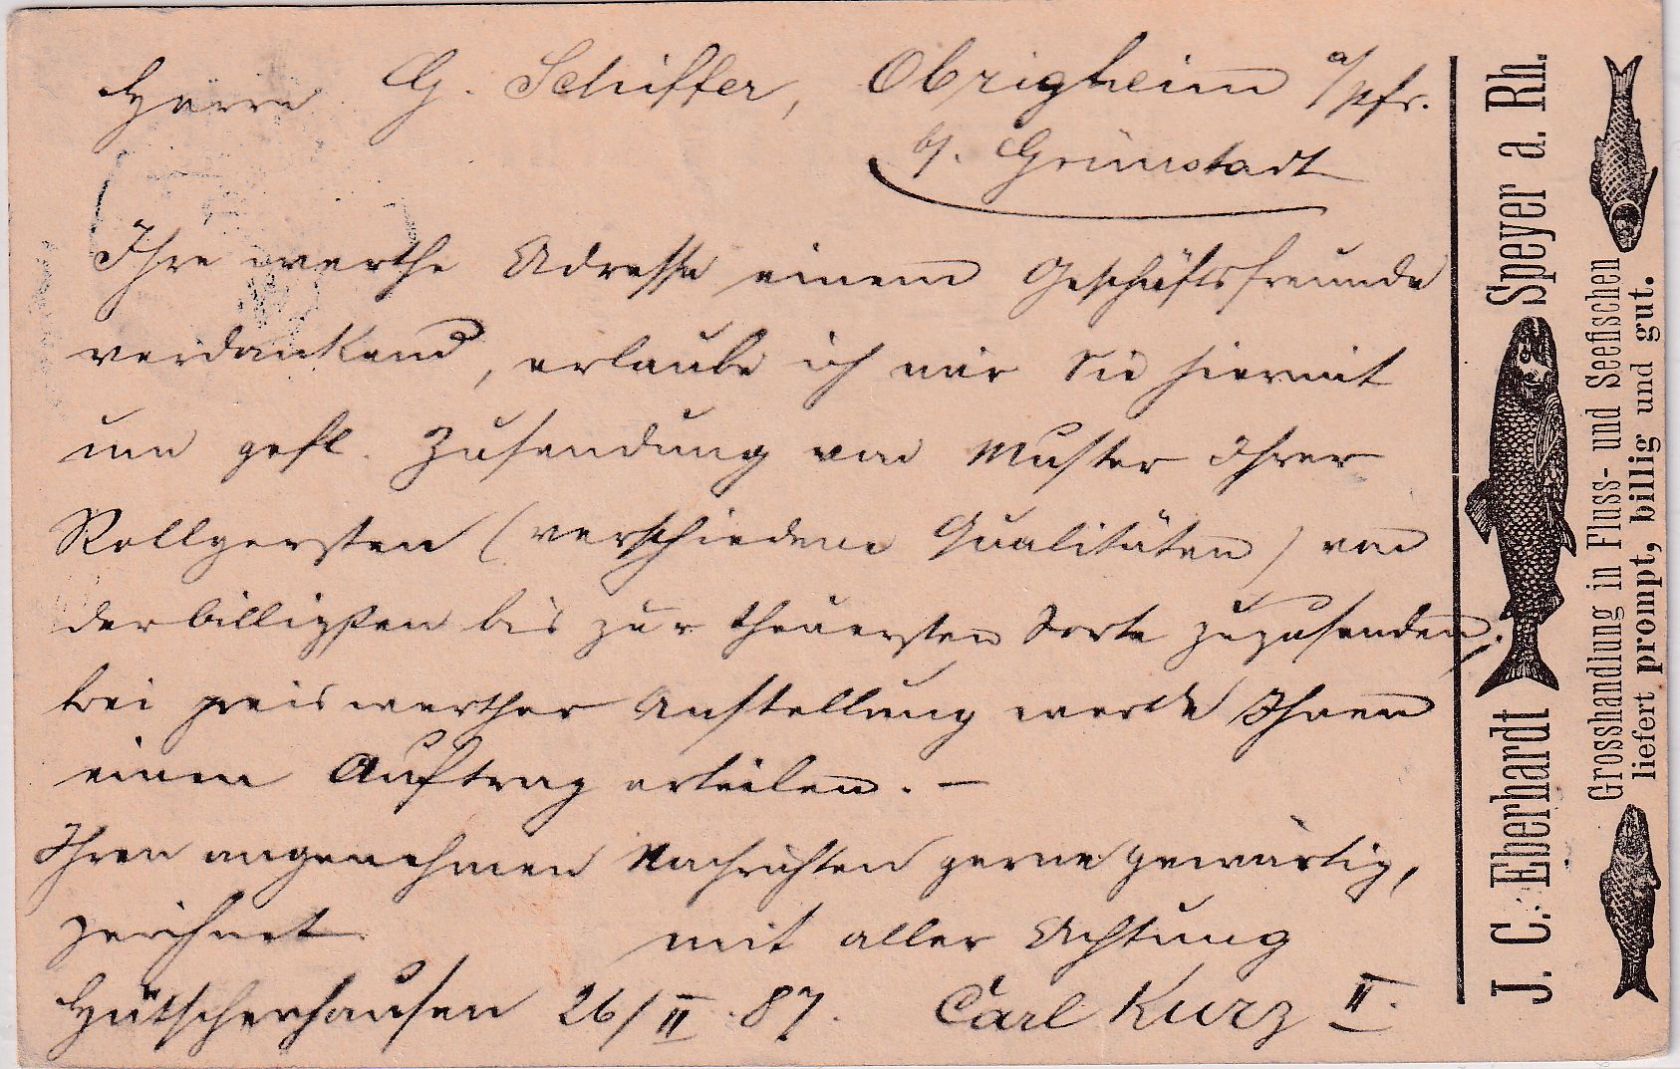 Herrn G. Schiffer, Obrigheim a/pfr.
b/. Grünstadt
Ihre werthe Adresse einem Geschäftsfreunde
verdankend, erlaube ich mir Sie hiermit
um gefl. Zusendung von Muster Ihrer
Rollgersten (verschiedene Qualitäten) von
der billigsten bis zur theuersten Sorte zuzusenden;
bei preiswerther Anstellung werde Ihnen
einen Auftrag erteilen. —
Ihren angenehmen Nachrichten gerne gewärtig,
zeichnet mit aller Achtung
Hütschenhausen 26/II.87. Carl Kurz II.
J. C. Eberhardt Speyer a. Rh.
Grosshandlung in Fluss- und Seefischen
liefert prompt, billig und gut.